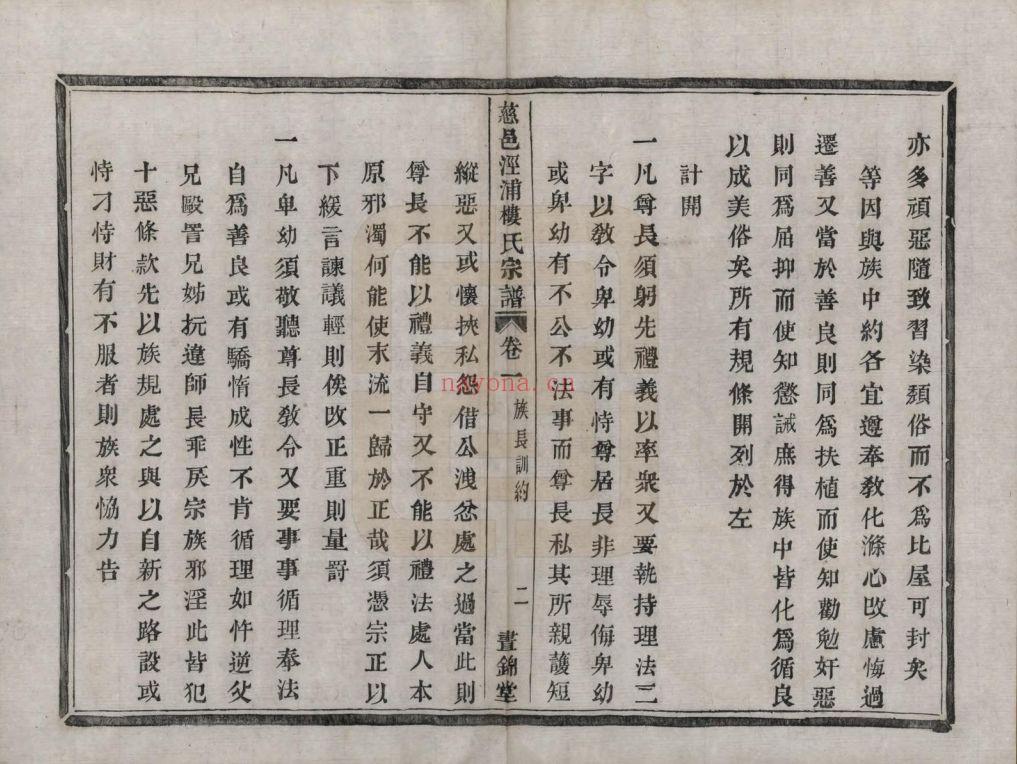 亦多頑惡隨致習染頹俗而不爲比屋可封矣
等因與族中約各宜遵奉敎化滌心改慮悔過
遷善又當於善良則同爲扶植而使知勸勉奸惡
則同爲屈抑而使知懲誡庶得族中皆化爲循良
以成美俗矣所有規條開列於左
計開
一凡尊長須躬先禮義以率衆又要執持理法二
字以敎令卑幼或有恃尊居長非理辱侮卑幼
或卑幼有不公不法事而尊長私其所親護短
慈邑涇浦樓氏宗譜 卷一 族長訓約 二 晝錦堂
縱惡又或懷挾私怨借公洩忿處之過當此則
尊長不能以禮義自守又不能以禮法處人本
原邪濁何能使末流一歸於正哉須憑宗正以
下緩言諫議輕則俟改正重則量罸
一凡卑幼須敬聽尊長敎令又要事事循理奉法
自爲善良或有驕惰成性不肯循理如忤逆父
兄毆詈兄姊抗違師長乖戾宗族邪淫此皆犯
十惡條款先以族規處之與以自新之路設或
恃刁恃財有不服者則族衆恊力告
nayona.cn